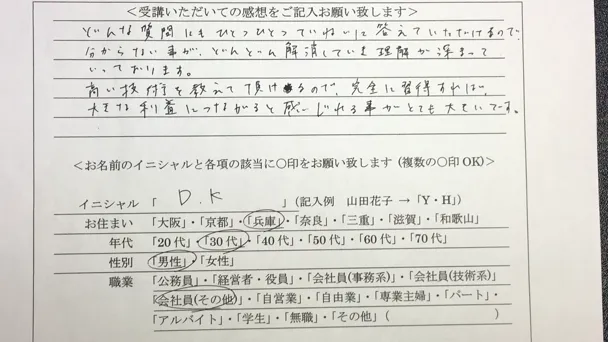 ＜受講いただいての感想をご記入お願い致します＞
どんな質問にもひとつひとつていねいに答えていただけるので、
分からない事が、どんどん解消していき理解が深まって
いっております。
高い技術を教えて頂けるので、完全に習得すれば、
大きな利益につながると感じれる事がとても大きいです。
＜お名前のイニシャルと各項の該当に〇印をお願い致します (複数の〇印 OK)＞
イニシャル 「 D.K 」 (記入例 山田花子 → 「Y・H」)
お住まい 「大阪」・「京都」・「兵庫」・「奈良」・「三重」・「滋賀」・「和歌山」
年代 「20 代」・「30 代」・「40 代」・「50 代」・「60 代」・「70 代」
性別 「男性」・「女性」
職業 「公務員」・「経営者・役員」・「会社員(事務系)」・「会社員(技術系)」
「会社員(その他)」・「自営業」・「自由業」・「専業主婦」・「パート」・
「アルバイト」・「学生」・「無職」・「その他」( )